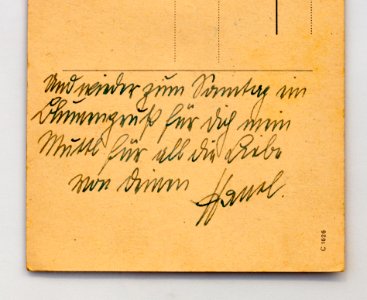 Und wieder zum Sonntag ein
Blumengruß für Dich mein
Muttl für all die Liebe
von Deinem
C 1626